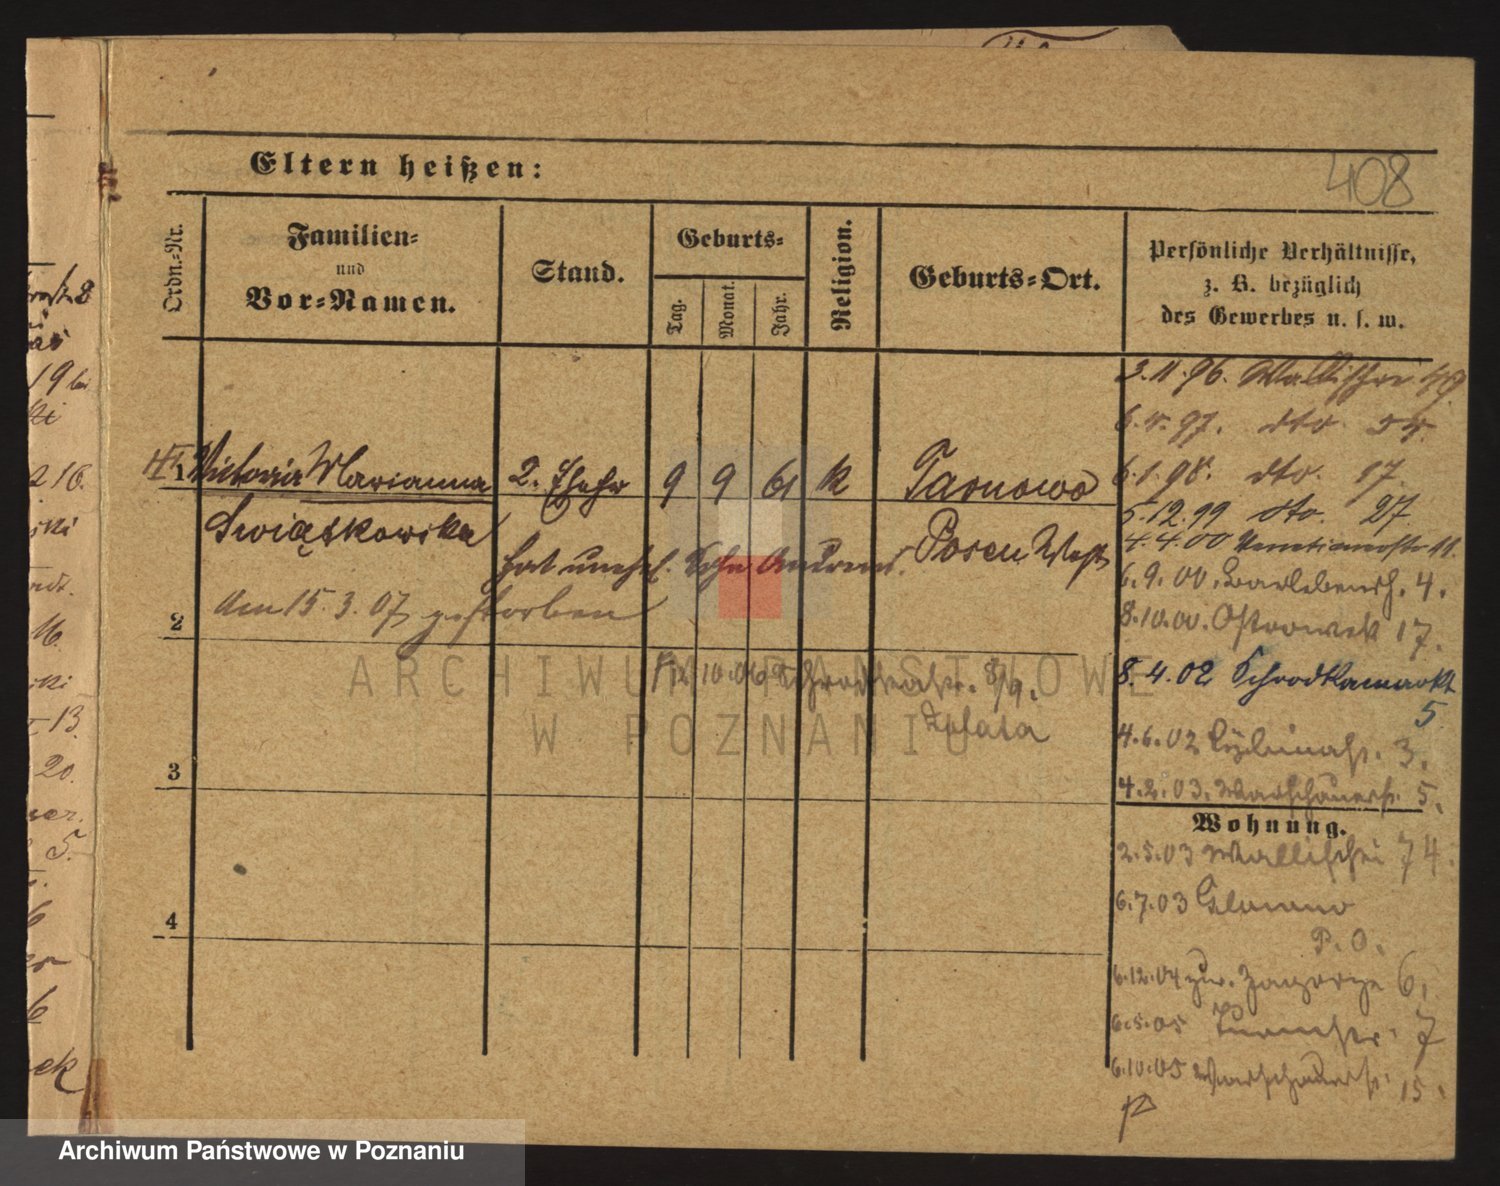 408
Eltern heißen:
Ordn.-Nr.
Familien-
und
Vor-Namen.
Stand.
Geburts-
Tag.
Monat.
Jahr.
Religion.
Geburts-Ort.
Persönliche Verhältnisse,
z. B. bezüglich
des Gewerbes u. s. w.
3.11.96. Wallischei
6.4.97. dto
6.1.98. dto. 17.
5.12.99 dto. 27
4.4.00 Venetianerstr. 11.
6.9.00. 4.
8.10.00. Ostrowek 17.
8.4.02 Schrodkamarkt
5
4.6.02 Cybinastr. 3.
4.2.03. Warschauerstr. 5.
Wohnung.
2.5.03 Wallischei 74.
6.7.03 Glowno
P. O.
6.12.04 zur. Zagorze 6.
6.5.05 Turmstr. 7
6.10.05 Warschauerstr. 15.
1 Victoria Marianna 2. Ehefr 9 9 61 k Tarnowo
Swiątkowska Posen West
hat unehel. Sohn Andreas.
am 15.3.07 gestorben
2
12.10.06 Schrodkastr. 8/9.
3
4
ARCHIWUM PAŃSTWOWE
W POZNANIU
Archiwum Państwowe w Poznaniu